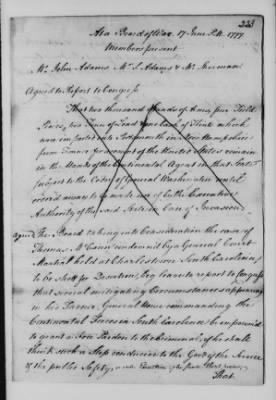 223
At a Board of War 17 June P.M. 1777
Members present
Mr. John Adams Mr. S. Adams & Mr. Sherman
Agreed to Report to Congress
That two thousand Stands of Arms, five Field
Pieces, two Tons of Lead and of Flints which
are imported into Portsmouth in New Hampshire
from France for account of the United States remain
in the Hands of the Continental Agent in that State
subject to the Order of General Washington until
ordered away to be made use of by the Executive
Authority of the said State in Case of Invasion
agreed The Board taking into Consideration the case of
Thomas under by a General Court
Martial held at Charlestown South Carolina,
to be shot for Desertion, beg leave to report to Congress
that several mitigating Circumstances appearing
in his Favour General Howe commanding the
Continental Forces in South Carolina be impowered
to grant a Free Pardon to the Criminal, if he shall
think such a Step conducive to the Good of the Service
& the public Safety,
That